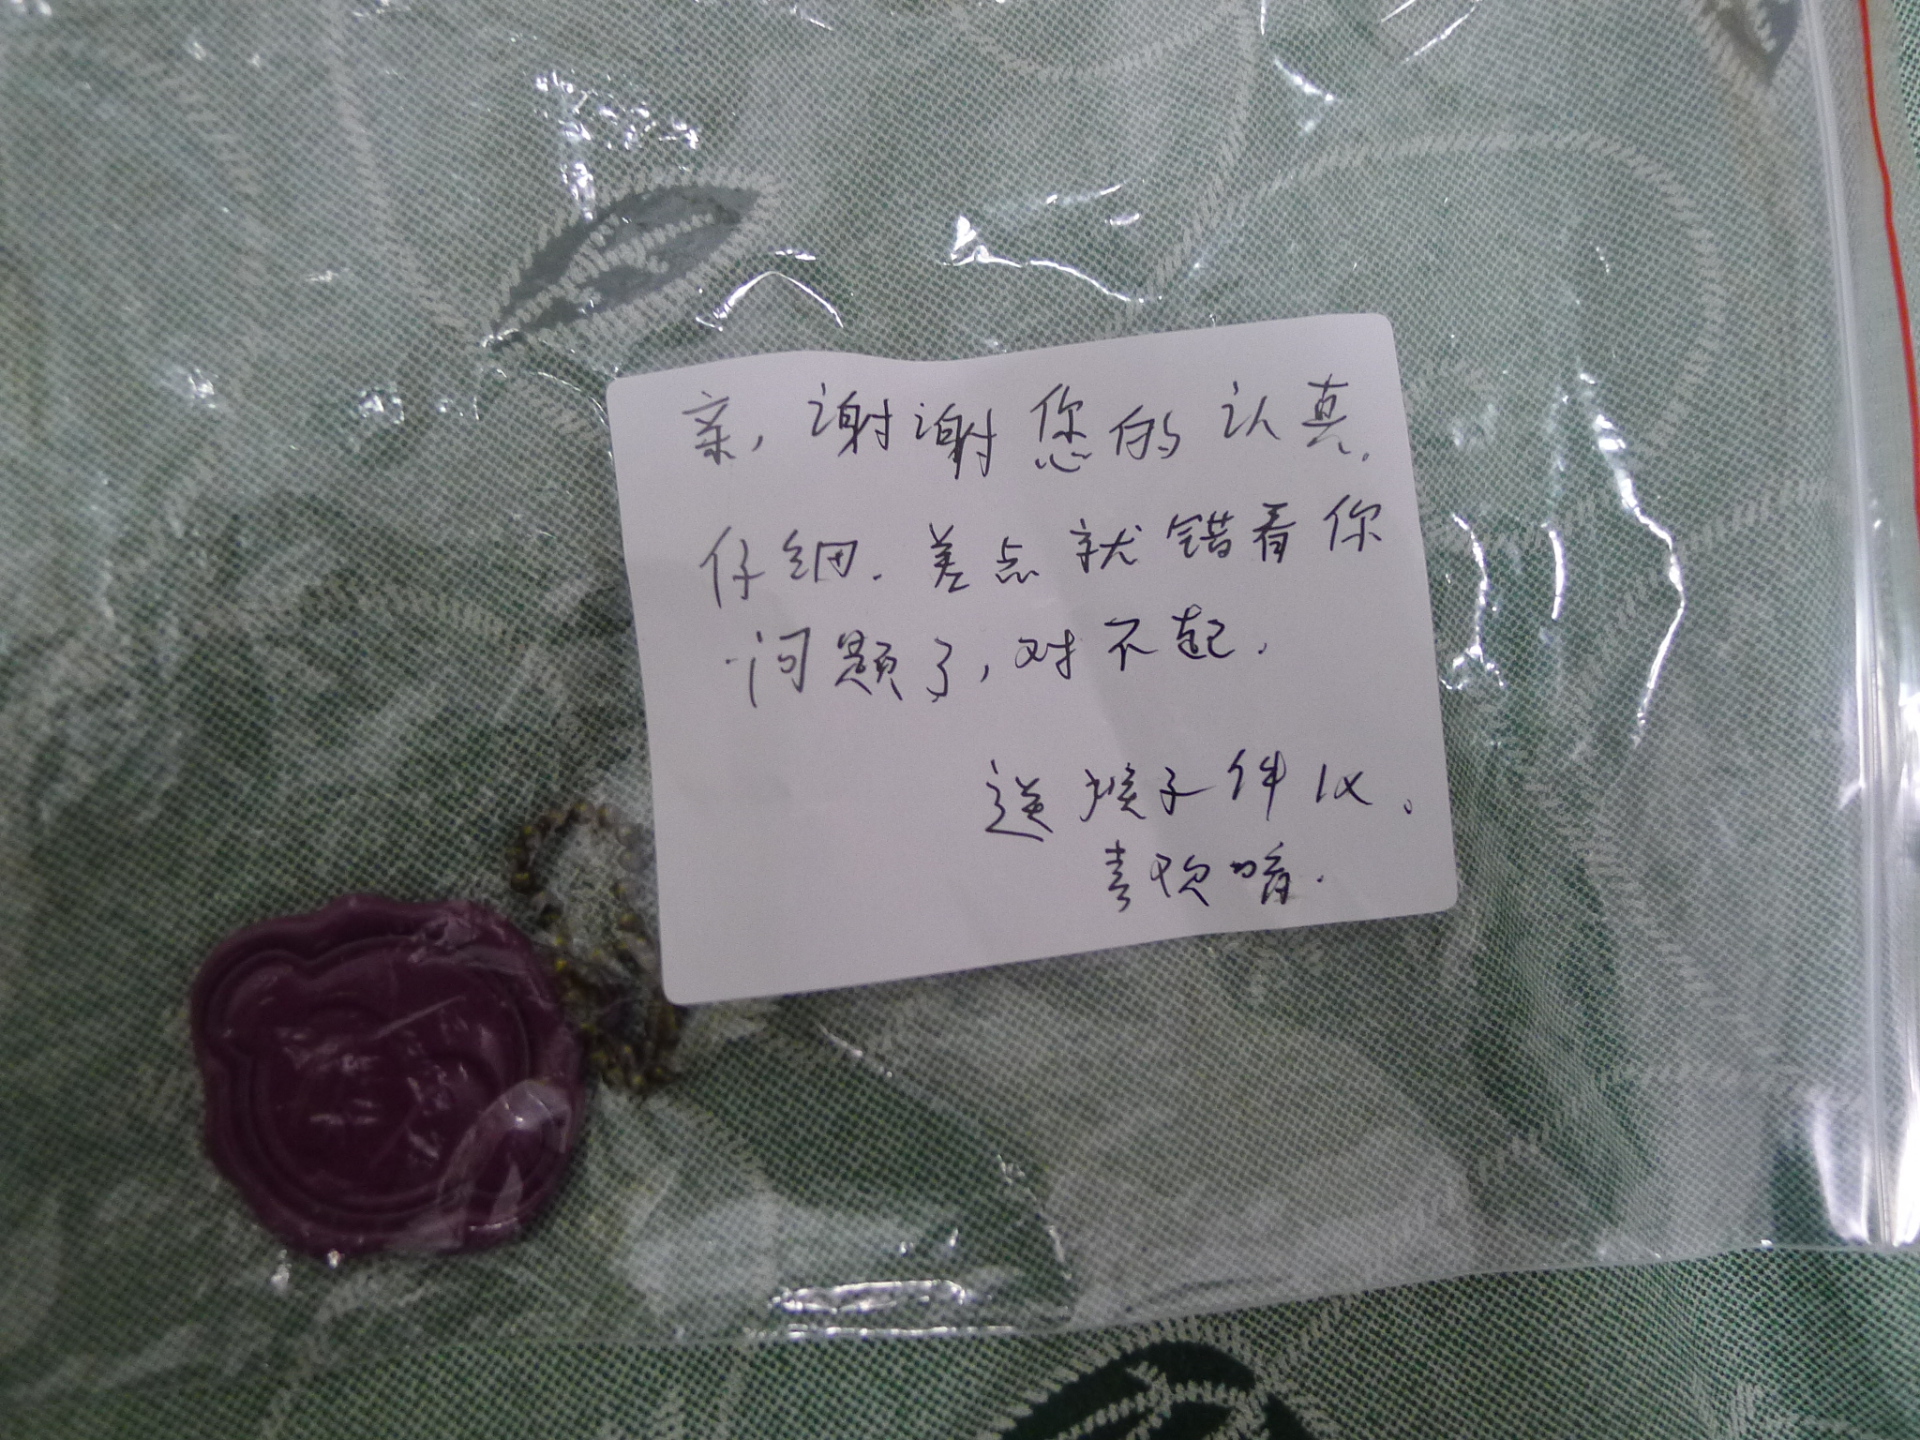 亲，谢谢您的认真.
仔细.差点就错看你
问题了,对不起.
送猴子件1x。
喜欢嘻.